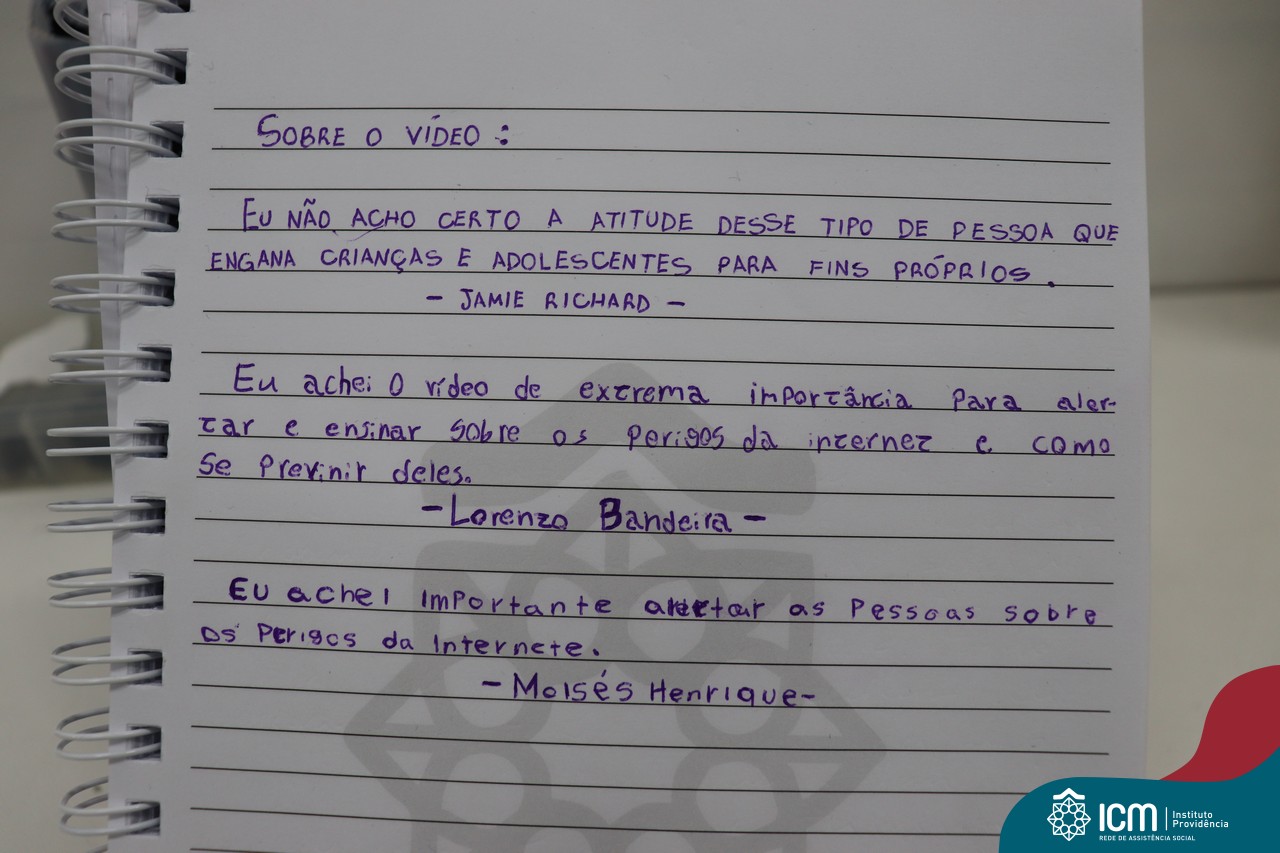 SOBRE O VÍDEO :
EU NÃO ACHO CERTO A ATITUDE DESSE TIPO DE PESSOA QUE
ENGANA CRIANÇAS E ADOLESCENTES PARA FINS PRÓPRIOS.
- JAMIE RICHARD -
Eu achei O vídeo de extrema importância para aler-
tar e ensinar sobre os perigos da internet e como
se previnir deles.
- Lorenzo Bandeira -
EU achei importante alertar as pessoas sobre
os perigos da internete.
- Moisés Henrique -
ICM
Instituto
Providência
REDE DE ASSISTÊNCIA SOCIAL